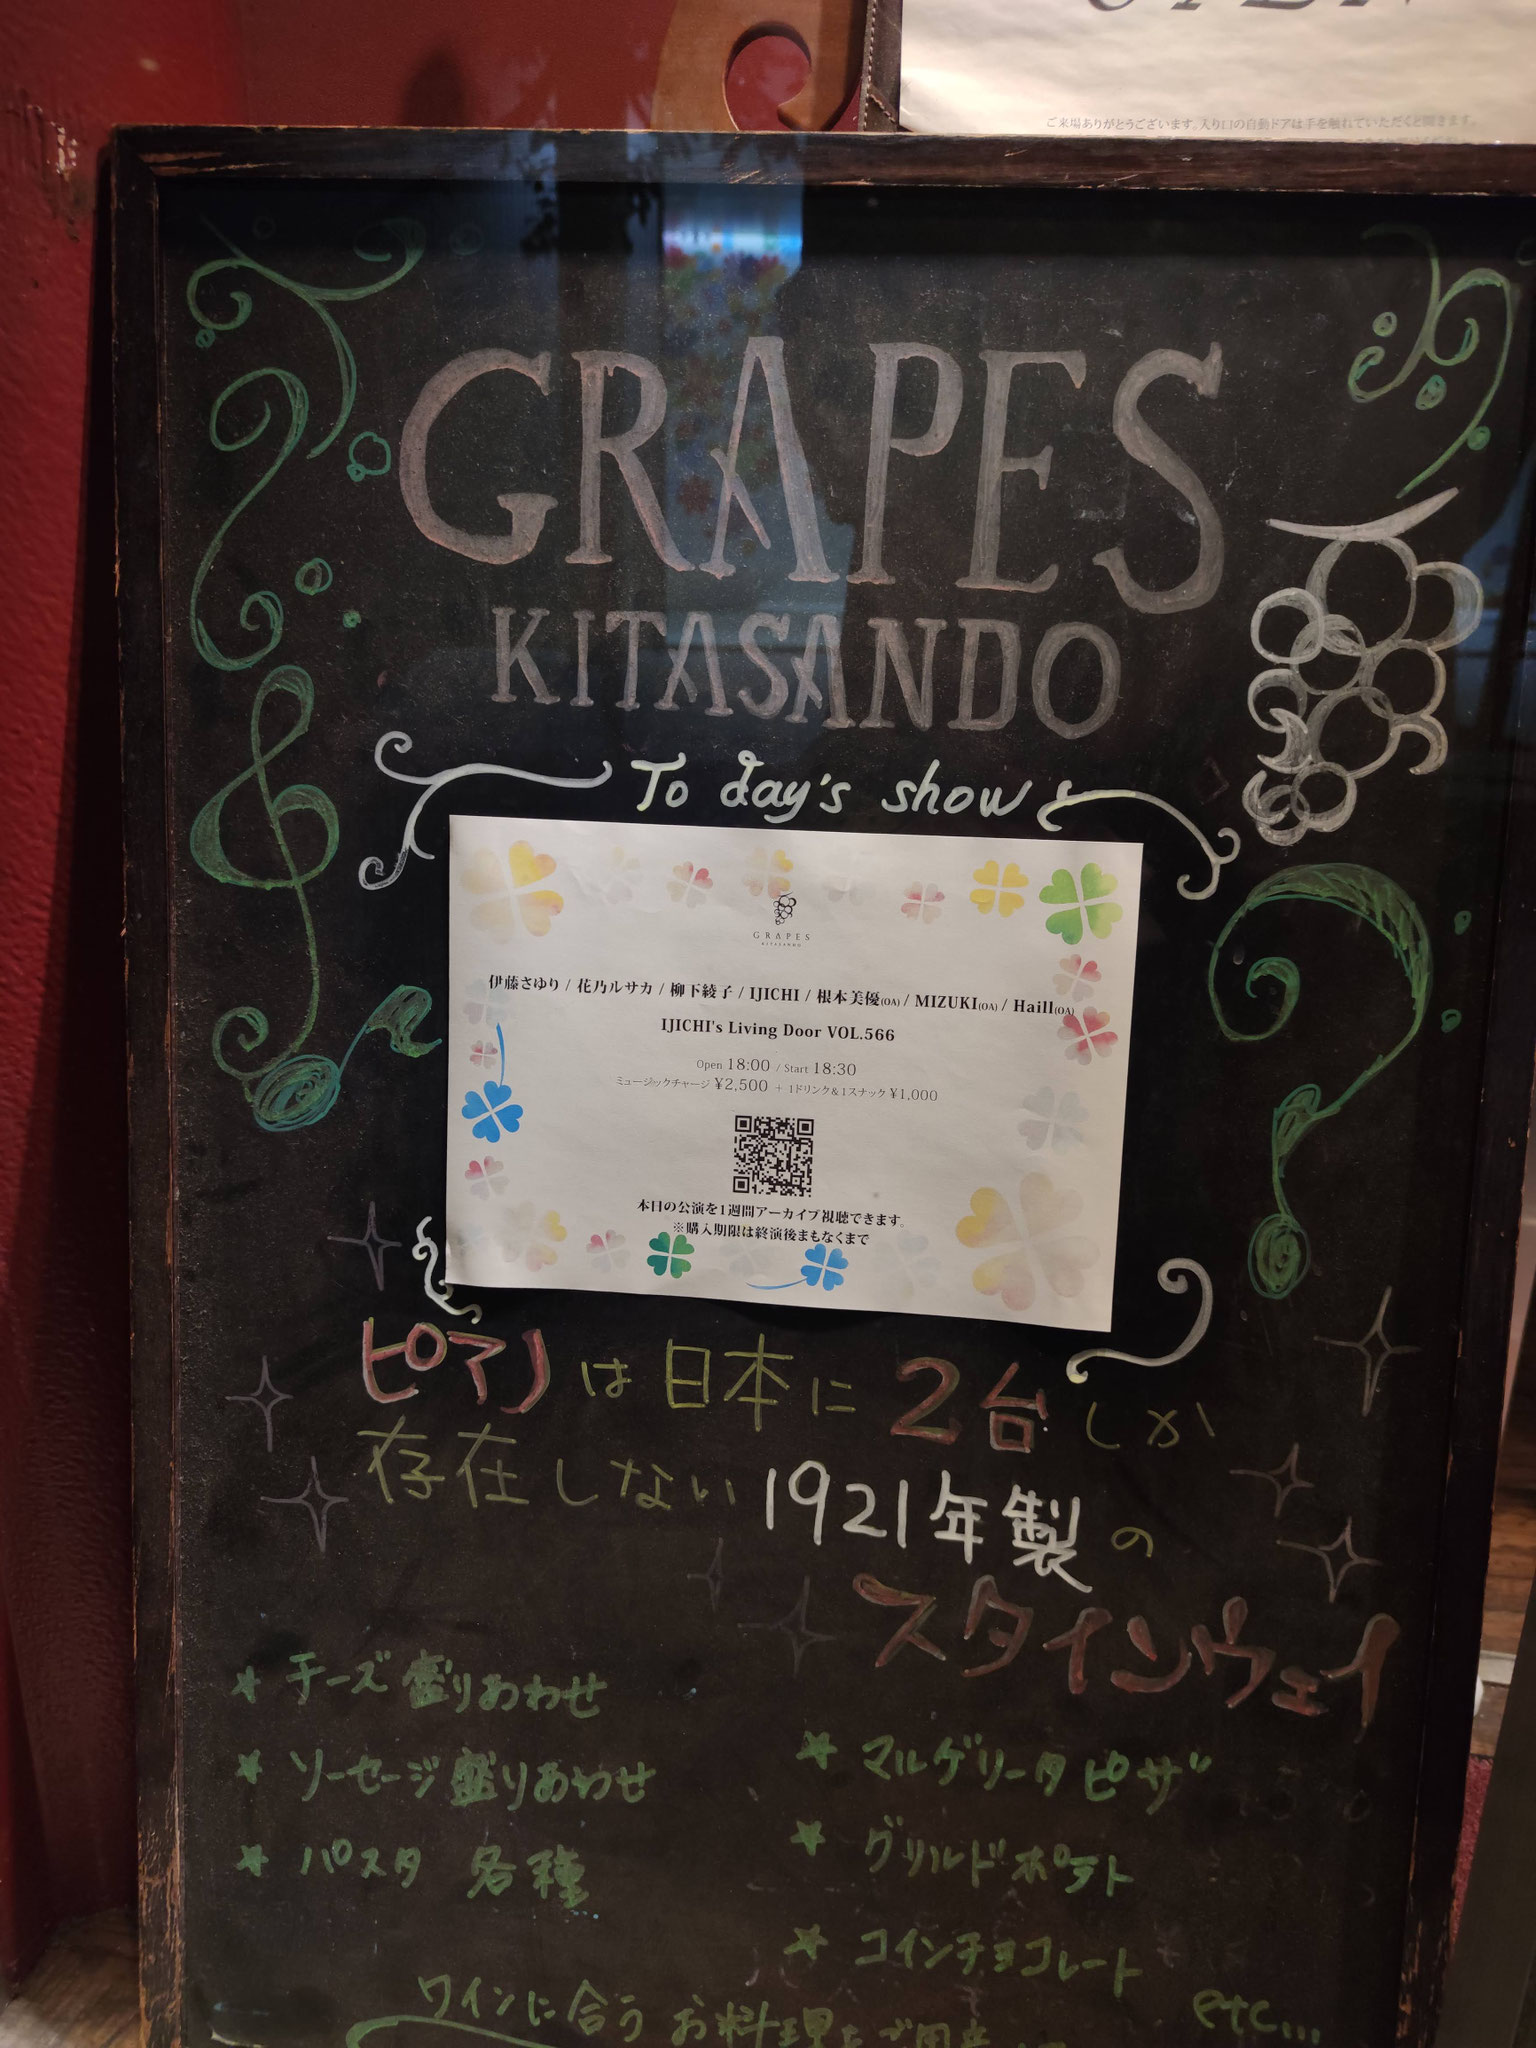 ご来場ありがとうございます。入り口の自動ドアは手を触れていただくと開きます。
GRAPES
KITASANDO
To day's show
GRAPES
KITASANDO
伊藤さゆり / 花乃ルサカ / 柳下綾子 / IJICHI / 根本美優(OA) / MIZUKI(OA) / Haill(OA)
IJICHI's Living Door VOL.566
Open 18:00 / Start 18:30
ミュージックチャージ ¥2,500 + 1ドリンク&1スナック ¥1,000
本日の公演を1週間アーカイブ視聴できます。
※購入期限は終演後まもなくまで
ピアノは日本に2台しか
存在しない1921年製の
スタインウェイ
* チーズ盛りあわせ
* ソーセージ盛りあわせ
* パスタ 各種
* マルゲリータピザ
* グリルドポテト
* コインチョコレート
etc...
ワインに合うお料理をご用意